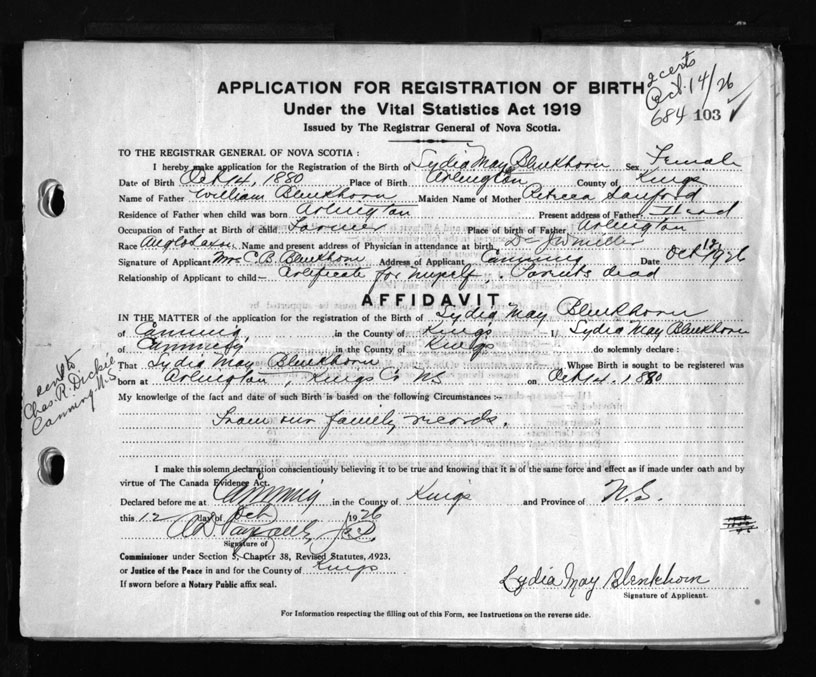 2 certs
Oct. 14/26
684 103 ✓
APPLICATION FOR REGISTRATION OF BIRTH
Under the Vital Statistics Act 1919
Issued by The Registrar General of Nova Scotia.
TO THE REGISTRAR GENERAL OF NOVA SCOTIA :
I hereby make application for the Registration of the Birth of Lydia May Blenkhorn Sex Female
Date of Birth Oct 14, 1880 Place of Birth Arlington County of Kings
Name of Father William Blenkhorn Maiden Name of Mother Rebecca Sanford
Residence of Father when child was born Arlington Present address of Father Dead
Occupation of Father at Birth of child Farmer Place of birth of Father Arlington
Race Anglo Saxon Name and present address of Physician in attendance at birth Dr J W Miller
Signature of Applicant Mrs C. B. Blenkhorn Address of Applicant Canning Date Oct 12 1926
Relationship of Applicant to child Certificate for myself, Parents dead
AFFIDAVIT
IN THE MATTER of the application for the registration of the Birth of Lydia May Blenkhorn
of Canning in the County of Kings I/ Lydia May Blenkhorn
of Canning in the County of Kings do solemnly declare :
That Lydia May Blenkhorn Whose Birth is sought to be registered was
born at Arlington, Kings Co NS on Oct 14, 1880
sent to
Chas. R. Dickie
Canning N.S
My knowledge of the fact and date of such Birth is based on the following Circumstances :-
From our family records.
I make this solemn declaration conscientiously believing it to be true and knowing that it is of the same force and effect as if made under oath and by
virtue of The Canada Evidence Act.
Declared before me at Canning in the County of Kings and Province of N.S.
this 12 day of Oct 1926
J.P.
Signature of
Commissioner under Section 5, Chapter 38, Revised Statutes, 1923.
or Justice of the Peace in and for the County of Kings
If sworn before a Notary Public affix seal.
Lydia May Blenkhorn
Signature of Applicant.
For Information respecting the filling out of this Form, see Instructions on the reverse side.